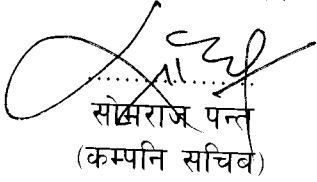 सोमराज पन्त
(कम्पनि सचिब)